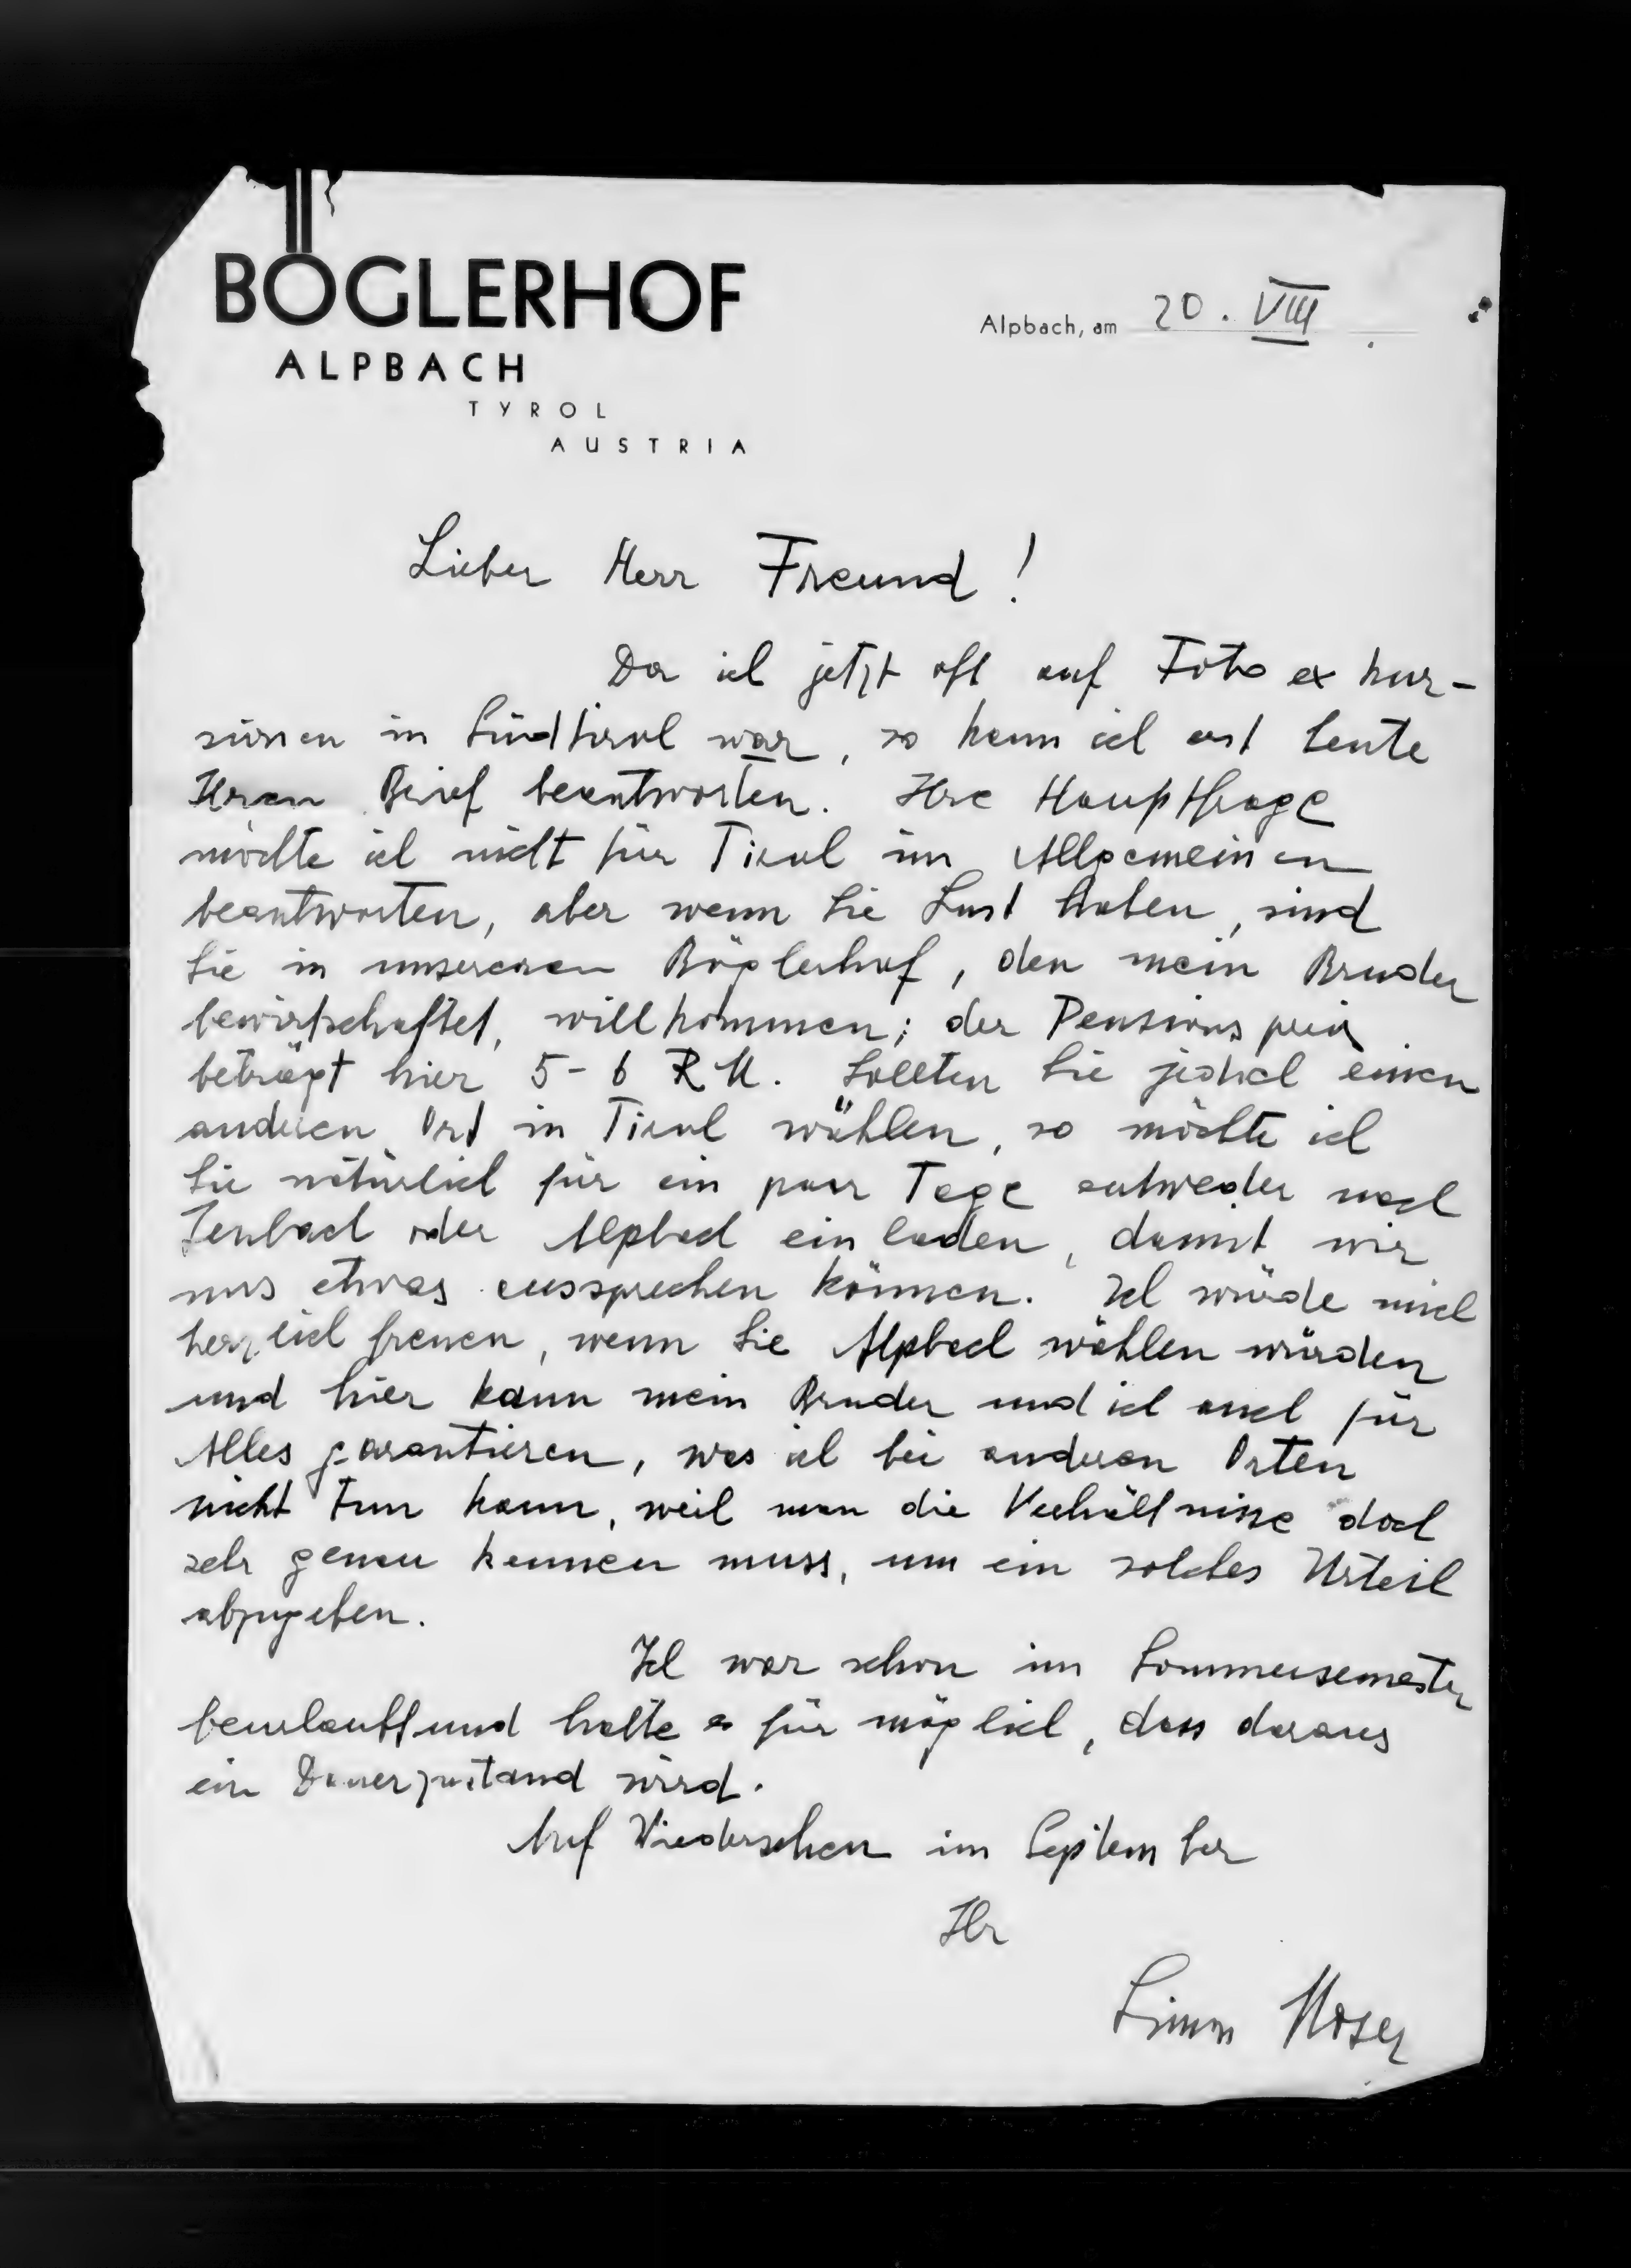 BÖGLERHOF
ALPBACH
TYROL
AUSTRIA
Alpbach, am 20. VIII
Lieber Herr Freund!
Da ich jetzt oft auf Foto exkur-
sionen in Südtirol war, so kann ich erst heute
Ihren Brief beantworten. Ihre Hauptfrage
möchte ich nicht für Tirol im Allgemeinen
beantworten, aber wenn Sie Lust haben, sind
Sie in unsereren Böglerhof, den mein Bruder
bewirtschaftet, willkommen; der Pensionspreis
beträgt hier 5-6 RM. Sollten Sie jedoch einen
anderen Ort in Tirol wählen, so möchte ich
Sie natürlich für ein paar Tage entweder nach
Jenbach oder Alpbach einladen, damit wir
uns etwas aussprechen können. Ich würde mich
herzlich freuen, wenn Sie Alpbach wählen würden
und hier kann mein Bruder und ich auch für
Alles garantieren, was ich bei anderen Orten
nicht tun kann, weil man die Verhältnisse doch
sehr genau kennen muss, um ein solches Urteil
abzugeben.
Ich war schon im Sommersemester
beurlaubt und halte es für möglich, dass daraus
ein Dauerzustand wird.
Auf Wiedersehen im September
Ihr
Simon Moser